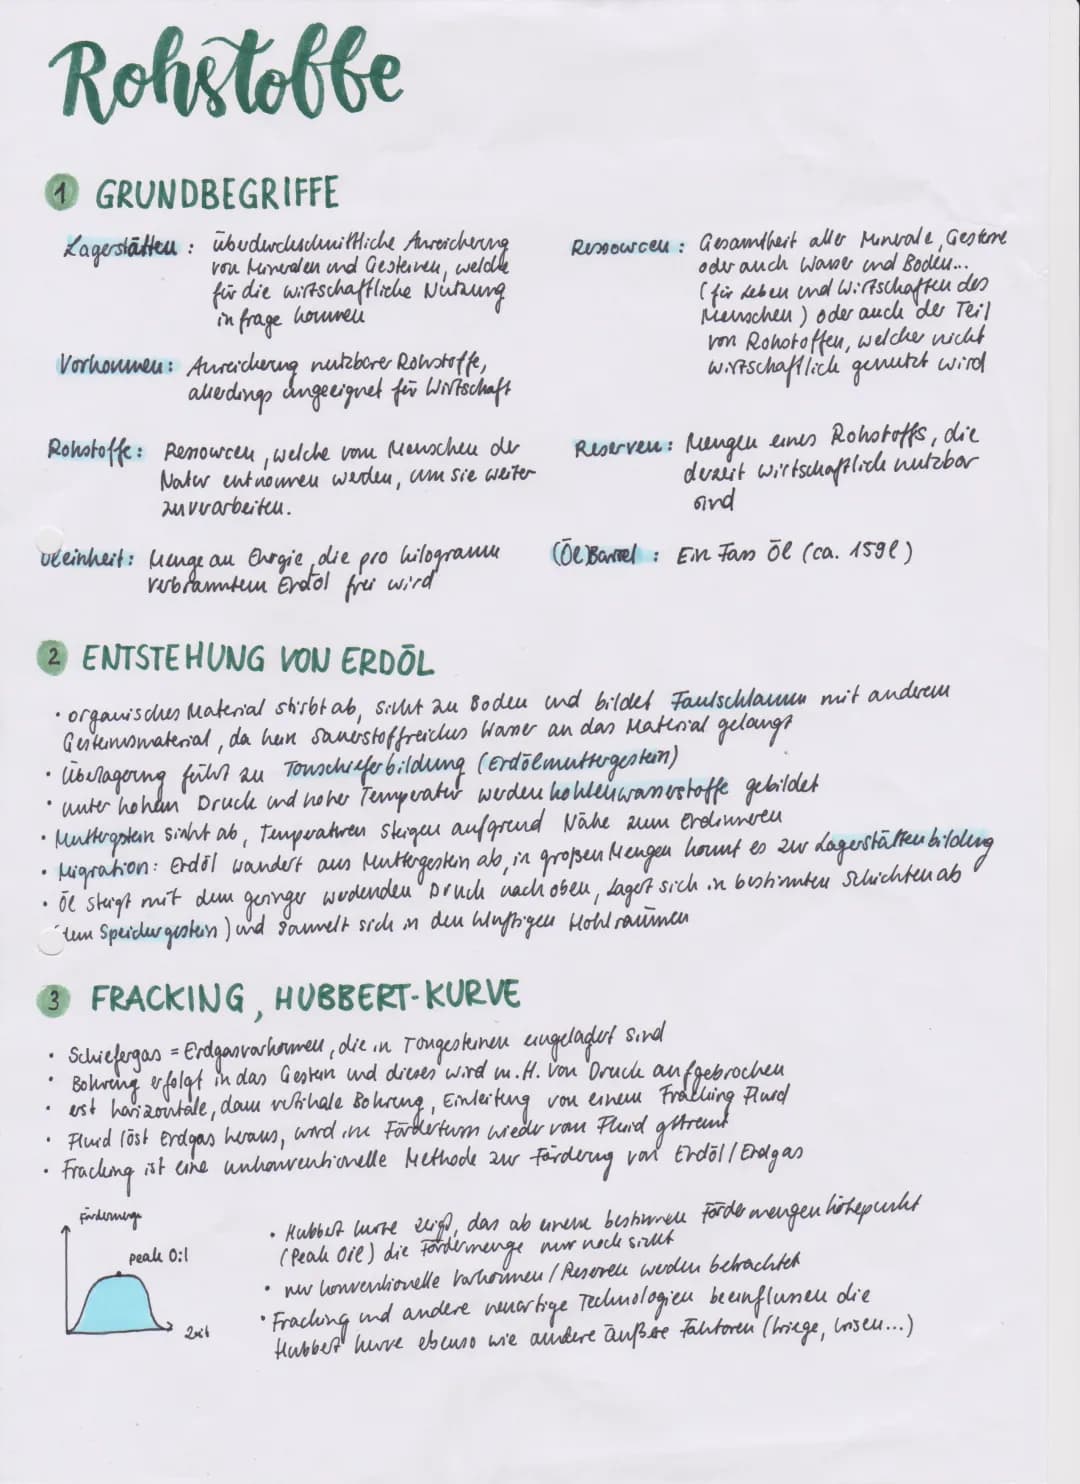 Rohstoffe
1 GRUNDBEGRIFFE
Lagerstätten : überdurchschnittliche Anreicherung
von Mineralen und Gesteinen, welche
für die wirtschaftliche Nutzung
in frage kommen
Vorkommen: Anreicherung nutzbarer Rohstoffe,
allerdings ungeeignet für Wirtschaft
Rohstoffe: Ressourcen, welche vom Menschen der
Natur entnommen werden, um sie weiter
zu verarbeiten.
Öleinheit: Menge an Energie, die pro kilogramm
verbranntem Erdöl frei wird
Ressourcen : Gesamtheit aller Minerale, Gesteine
oder auch Wasser und Boden...
(für Leben und Wirtschaften des
Menschen) oder auch der Teil
von Rohstoffen, welcher nicht
wirtschaftlich genutzt wird
Reserven: Mengen eines Rohstoffs, die
derzeit wirtschaftlich nutzbar
sind
(Öl)Barrel : Ein Fass Öl (ca. 159l)
2 ENTSTEHUNG VON ERDÖL
• organisches Material stirbt ab, sinkt zu Boden und bildet Faulschlamm mit anderem
Gesteinsmaterial, da kein sauerstoffreiches Wasser an das Material gelangt
• Überlagerung führt zu Tonschieferbildung (Erdölmuttergestein)
• unter hohem Druck und hoher Temperatur werden kohlenwasserstoffe gebildet
• Muttergestein sinkt ab, Temperaturen steigen aufgrund Nähe zum Erdinneren
• Migration: Erdöl wandert aus Muttergestein ab, in großen Mengen kommt es zur Lagerstättenbildung
• Öl steigt mit dem geringer werdenden Druck nach oben, lagert sich in bestimmten Schichten ab
(dem Speichergestein) und sammelt sich in den kluftigen Hohlräumen
3 FRACKING, HUBBERT-KURVE
• Schiefergas = Erdgasvorkommen, die in Tongesteinen eingelagert sind
• Bohrung erfolgt in das Gestein und dieses wird m.H. von Druck aufgebrochen
• erst harizontale, dann vertikale Bohrung, Einleitung von einem Fracking Fluid
• Fluid löst Erdgas heraus, wird im Förderturm wieder vom Fluid getrennt
• Fracking ist eine unkonventionelle Methode zur Förderung von Erdöl/Erdgas
Fördermenge
peak Oil
Zeit
• Hubbert kurve zeigt, das ab einem bestimmten Fördermengenhöhepunkt
(Peak Oil) die Fördermenge nur noch sinkt
• nur konventionelle Vorkommen/Reserven werden betrachtet
• Fracking und andere neuartige Technologien beeinflussen die
Hubbert kurve ebenso wie andere äußere Faktoren (kriege, krisen...)